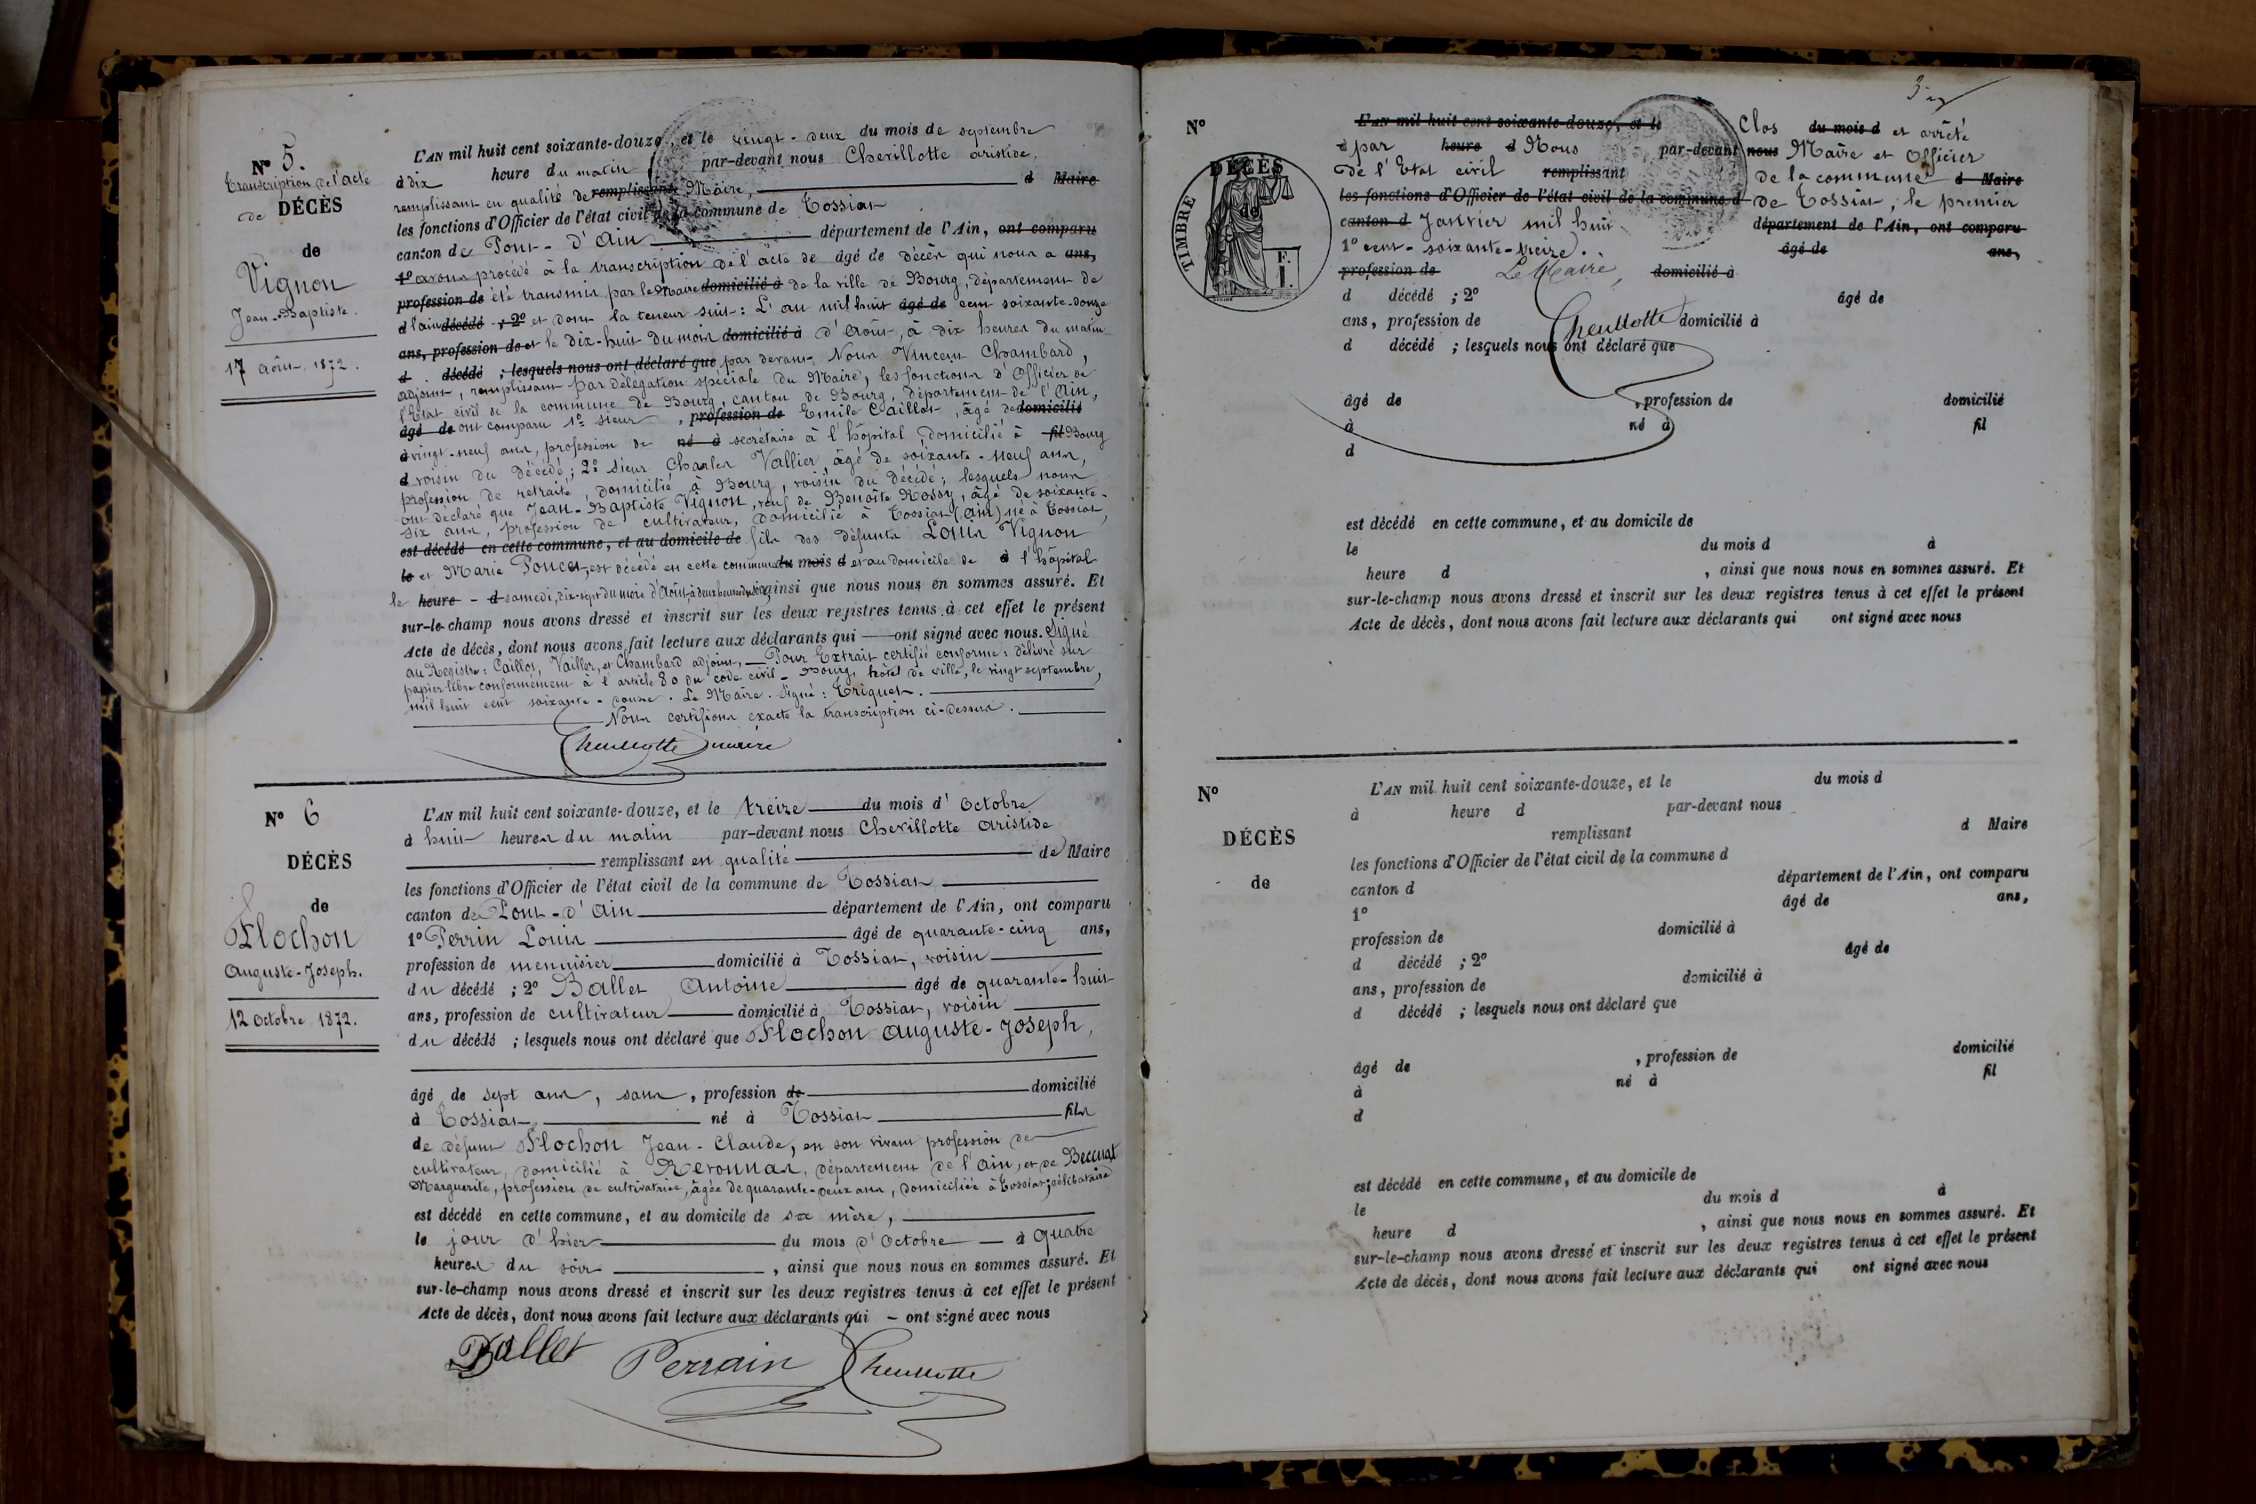 N° 5.
Transcription de l'acte
de DÉCÈS
de
Vignon
Jean-Baptiste.
17 août 1872.
L'AN mil huit cent soixante-douze, et le vingt-deux du mois de septembre
à dix heure du matin par-devant nous Chevillotte aristide,
remplissant en qualité de remplissant Maire, d Maire
les fonctions d'Officier de l'état civil de la commune de Tossiat
canton de Pont-d'Ain département de l'Ain, ont comparu
1° avons procédé à la transcription de l'acte de âgé de décès qui nous a ans,
profession de été transmis par le Maire domicilié à de la ville de Bourg, département de
d l'ain décédé ; 2° et dont la teneur suit : L'an mil huit âgé de cent soixante-douze
ans, profession de et le dix-huit du mois domicilié à d'août, à dix heures du matin
d décédé ; lesquels nous ont déclaré que par devant Nous Vincent Chambard,
adjoint, remplissant par délégation spéciale du Maire, les fonctions d'Officier de
l'Etat civil de la commune de Bourg, canton de Bourg, département de l'Ain,
âgé de ont comparu 1° sieur , profession de Emile Caillot, âgé de domicilié
à vingt-neuf ans, profession de né à secrétaire à l'hôpital, domicilié à fil Bourg
d voisin du décédé; 2° sieur Charles Vallier, âgé de soixante-neuf ans,
profession de retraité, domicilié à Bourg, voisin du décédé; lesquels nous
ont déclaré que Jean-Baptiste Vignon, veuf de Benoîte Rossy, âgé de soixante-
six ans, profession de cultivateur, domicilié à Tossiat (ain) né à Tossiat,
est décédé en cette commune, et au domicile de fils des défunts Louis Vignon
le et Marie Poncet, est décédé en cette commune du mois d et au domicile de à l'hôpital
le heure d samedi, dix-sept du mois d'Août, à deux heures du soir ainsi que nous nous en sommes assuré. Et
sur-le-champ nous avons dressé et inscrit sur les deux registres tenus à cet effet le présent
Acte de décès, dont nous avons fait lecture aux déclarants qui ont signé avec nous. Signé
au Registre : Caillot, Vallier, et Chambard adjoint, Pour Extrait certifié conforme : délivré sur
papier libre conformément à l'article 80 du code civil - Bourg, hôtel de ville, le vingt septembre,
mil huit cent soixante-douze. Le Maire. Signé : Triquet.
Nous certifions exacte la transcription ci-dessus.
Chevillotte maire
N° 6
DÉCÈS
de
Flochon
Auguste-Joseph.
12 Octobre 1872.
L'AN mil huit cent soixante-douze, et le treize du mois d'Octobre
à huit heures du matin par-devant nous Chevillotte Aristide
remplissant en qualité de Maire
les fonctions d'Officier de l'état civil de la commune de Tossiat
canton de Pont-d'Ain département de l'Ain, ont comparu
1° Perrin Louis âgé de quarante-cinq ans,
profession de menuisier domicilié à Tossiat, voisin
du décédé ; 2° Ballet Antoine âgé de quarante-huit
ans, profession de cultivateur domicilié à Tossiat, voisin
du décédé ; lesquels nous ont déclaré que Flochon Auguste-Joseph,
âgé de sept ans, sans , profession de domicilié
à Tossiat, né à Tossiat fils
de défunt Flochon Jean-Claude, en son vivant profession de
cultivateur, domicilié à Revonnas, département de l'Ain, et de Beccurat
Marguerite, profession de cultivatrice, âgée de quarante-deux ans, domiciliée à Tossiat; célibataire
est décédé en cette commune, et au domicile de sa mère,
le jour d'hier du mois d'Octobre à quatre
heures du soir , ainsi que nous nous en sommes assuré. Et
sur-le-champ nous avons dressé et inscrit sur les deux registres tenus à cet effet le présent
Acte de décès, dont nous avons fait lecture aux déclarants qui - ont signé avec nous
Ballet Perrain Chevillotte
N°
DÉCÈS
de
TIMBRE
F.
1.
L'AN mil huit cent soixante-douze, et le Clos du mois d et arrêté
à par heure d Nous par-devant nous Maire et Officier
de l'Etat civil remplissant de la commune d Maire
les fonctions d'Officier de l'état civil de la commune d de Tossiat, le premier
canton d Janvier mil huit département de l'Ain, ont comparu
1° cent-soixante-treize. âgé de ans,
profession de Le Maire, domicilié à
d décédé ; 2° âgé de
ans, profession de Chevillotte domicilié à
d décédé ; lesquels nous ont déclaré que
âgé de , profession de domicilié
à né à fil
d
est décédé en cette commune, et au domicile de
le du mois d à
heure d , ainsi que nous nous en sommes assuré. Et
sur-le-champ nous avons dressé et inscrit sur les deux registres tenus à cet effet le présent
Acte de décès, dont nous avons fait lecture aux déclarants qui ont signé avec nous
N°
DÉCÈS
de
L'AN mil huit cent soixante-douze, et le du mois d
à heure d par-devant nous
remplissant d Maire
les fonctions d'Officier de l'état civil de la commune d
canton d département de l'Ain, ont comparu
1° âgé de ans,
profession de domicilié à
d décédé ; 2° âgé de
ans, profession de domicilié à
d décédé ; lesquels nous ont déclaré que
âgé de , profession de domicilié
à né à fil
d
est décédé en cette commune, et au domicile de
le du mois d à
heure d , ainsi que nous nous en sommes assuré. Et
sur-le-champ nous avons dressé et inscrit sur les deux registres tenus à cet effet le présent
Acte de décès, dont nous avons fait lecture aux déclarants qui ont signé avec nous